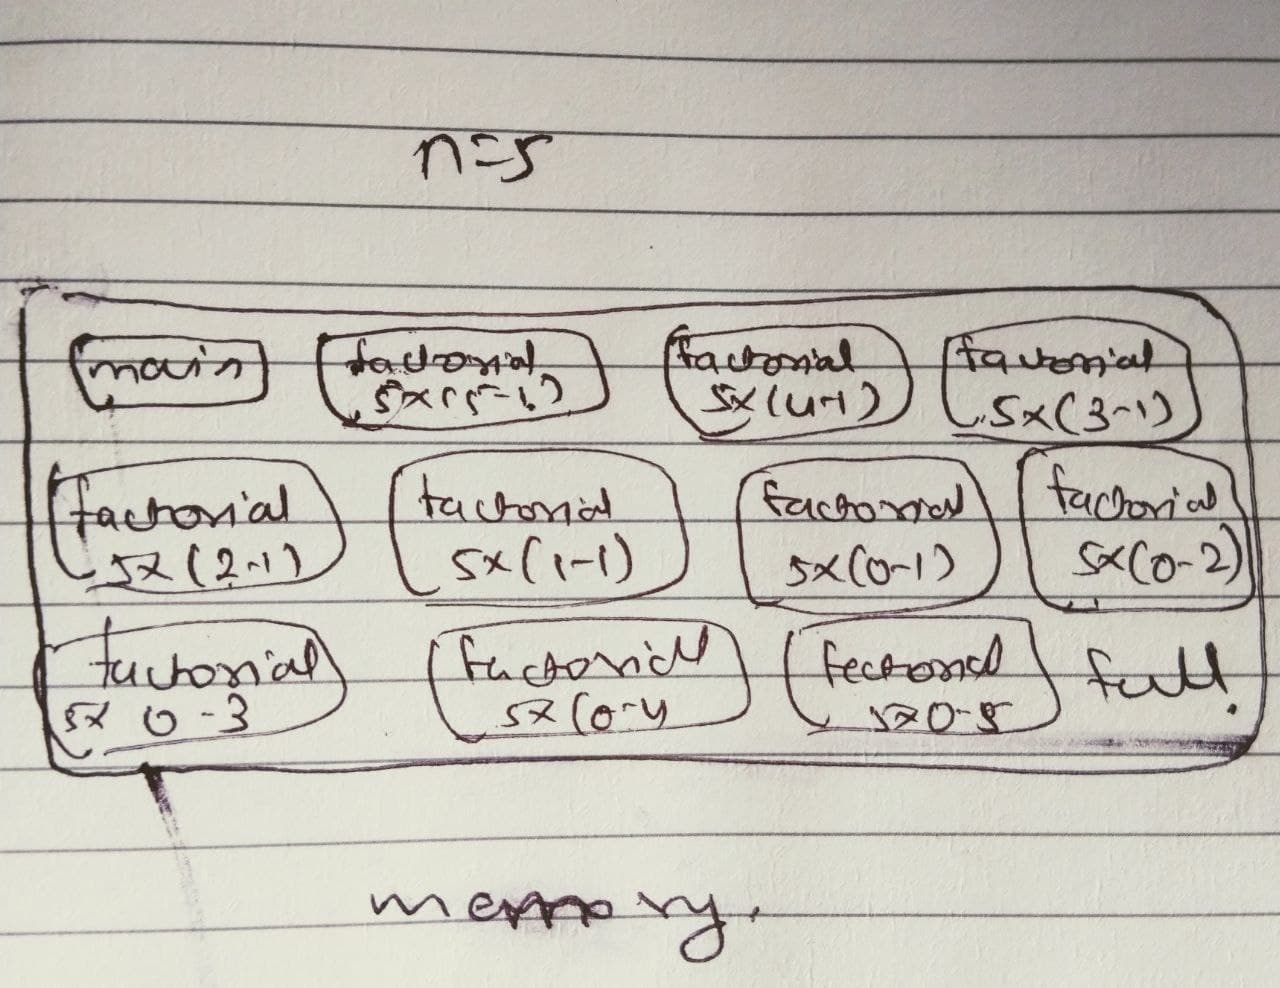 n=5
main
factorial
5x(5-1)
factorial
5x(4-1)
factorial
5x(3-1)
factorial
5x(2-1)
factorial
5x(1-1)
factorial
5x(0-1)
factorial
5x(0-2)
factorial
5x 0-3
factorial
5x(0-4
factorial
5x0-5
full.
memory.